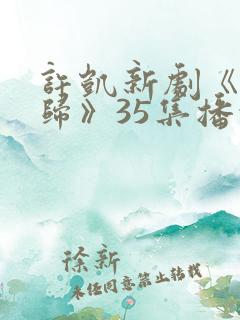 許凱新劇《
歸》35集播
徐新
未经同意禁止转载